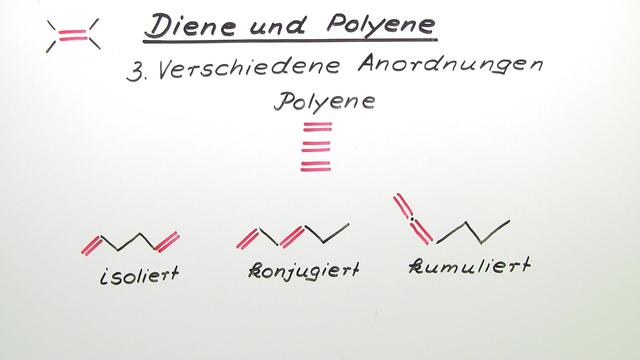 Diene und Polyene
3. Verschiedene Anordnungen
Polyene
isoliert konjugiert kumuliert